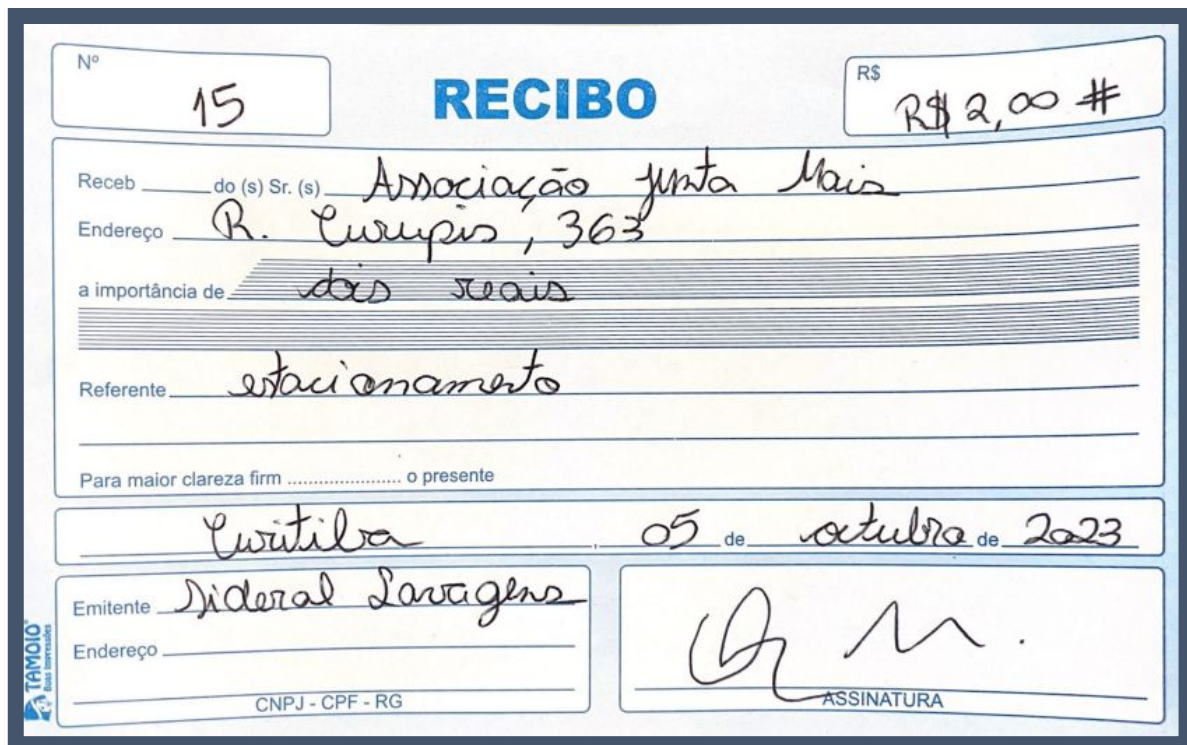 Nº
15
RECIBO
R$
R$ 2,00 #
Receb do (s) Sr. (s) Associação Junta Mais
Endereço R. Curupis, 363
a importância de dois reais
Referente estacionamento
Para maior clareza firm ...................... o presente
Curitiba, 05 de outubro de 2023
Emitente Sideral Lavagens
Endereço
CNPJ - CPF - RG
ASSINATURA
TAMOIO
Boas Impressões